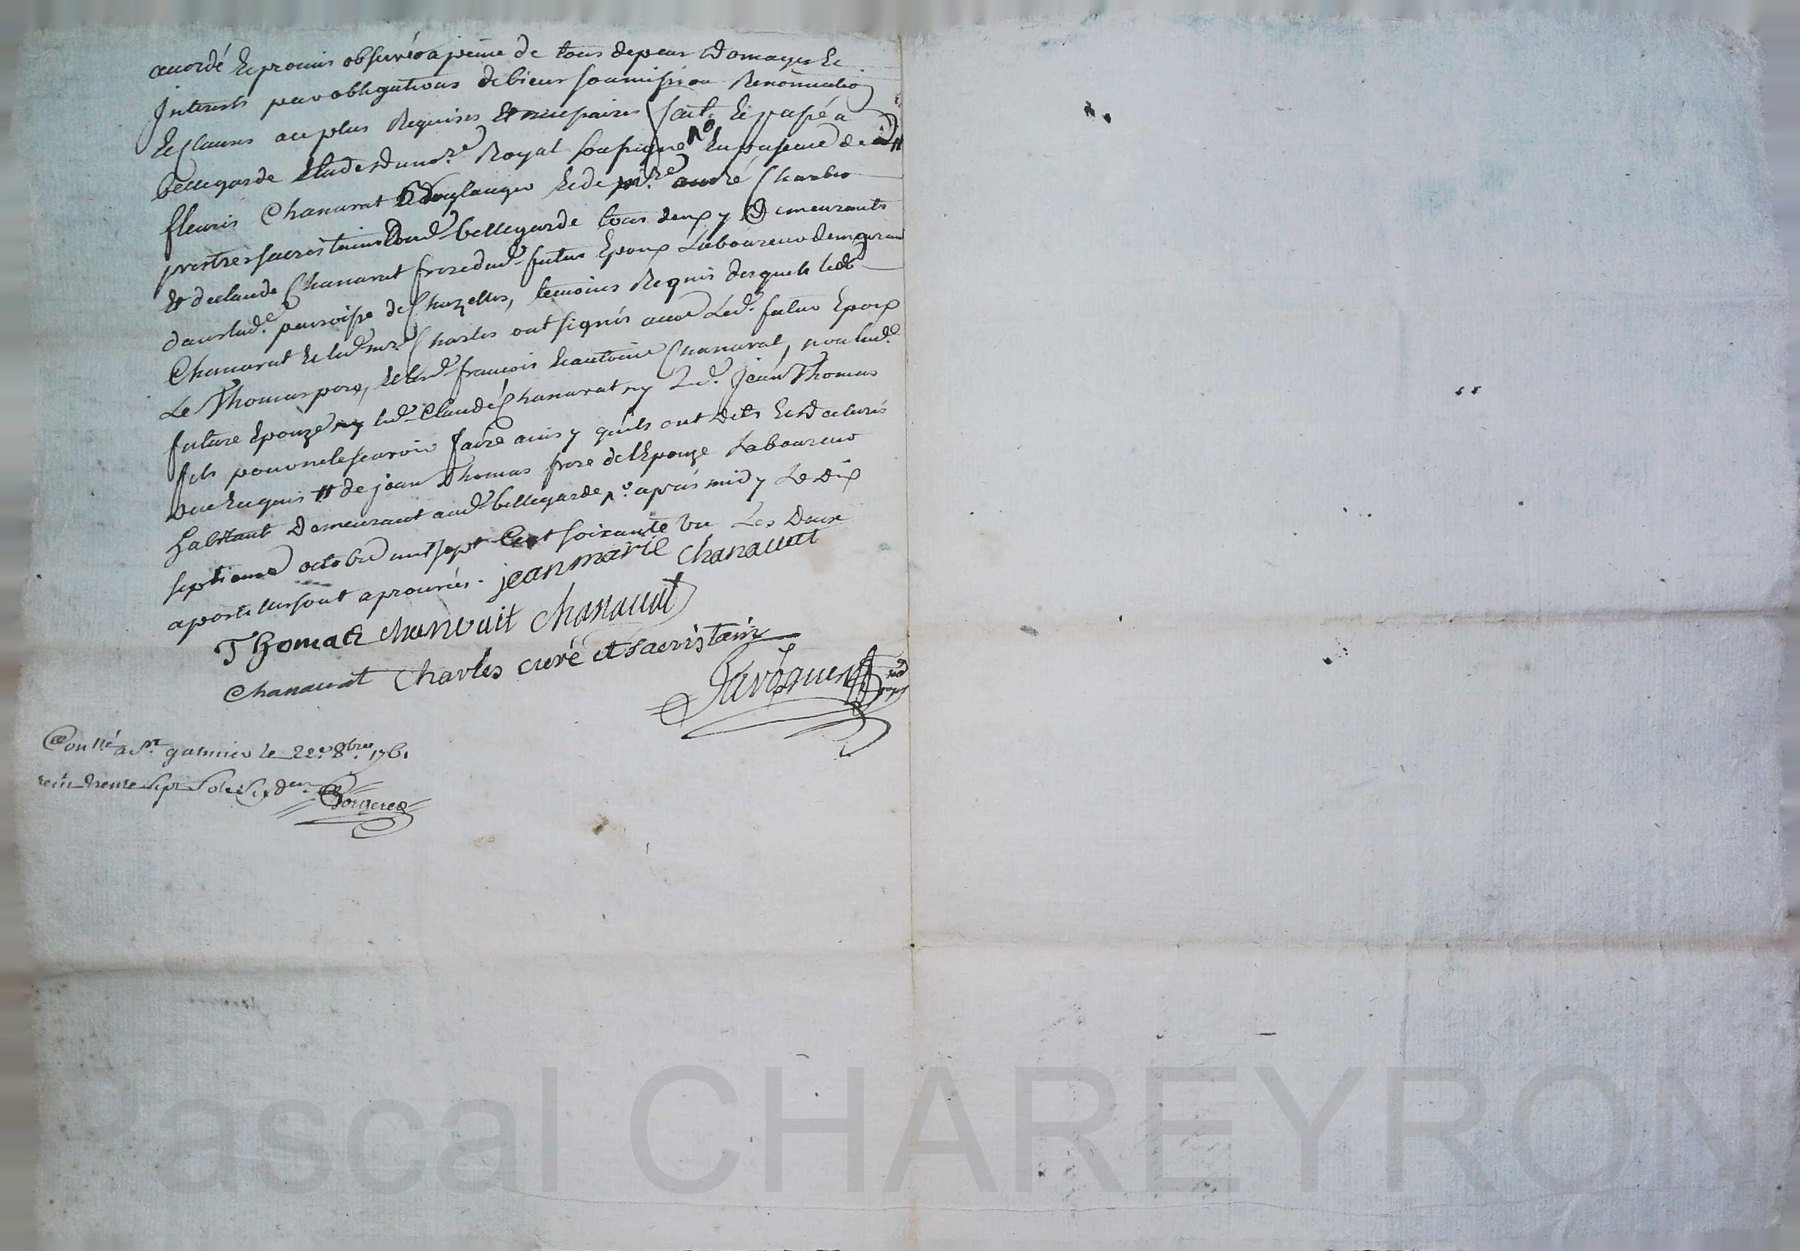 accordé Et promis observer a peine de tous depens Domages Et
Interests par obligations de biens soumission Renonciation
Et Clauses au plus Requises Et necessaires fait Et passé a
bellegarde Etude du no.re Royal soussigné En presence de
fleuris Chanavat Boulanger Et de m.re andré Charles
prestre sacristain dud. bellegarde tous deux y Demeurants
Et de Claude Chanavat frere dud. futur Epoux Laboureur demeurant
dans lad.e parroisse de Chazelles, temoins Requis desquels led.
Chanavat Et led. m.re Charles ont signés avec Led. futur Epoux
Le Thomas pere, Et lesd. francois Et antoine Chanavat, non lad.e
future Epouze ny led. Claude Chanavat ny L.d. Jean Thomas
fils pour ne le scavoir faire ainsy quils ont Dit Et Declarés
Enquis # de jean Thomas frere de l'Epouze Laboureur
habitant Demeurant aud. bellegarde apres midy Le Dix
septieme octobre mil sept Cent soixante un Les Deux
apostilles sont aprouvés. jean marie chanavat
Thomas chanavat chanavat
chanavat Charles curé et sacristain
Con.llé a S.t galmier le 22.e 8.bre 1761
recu trente sept sols six den.
Pascal CHAREYRON